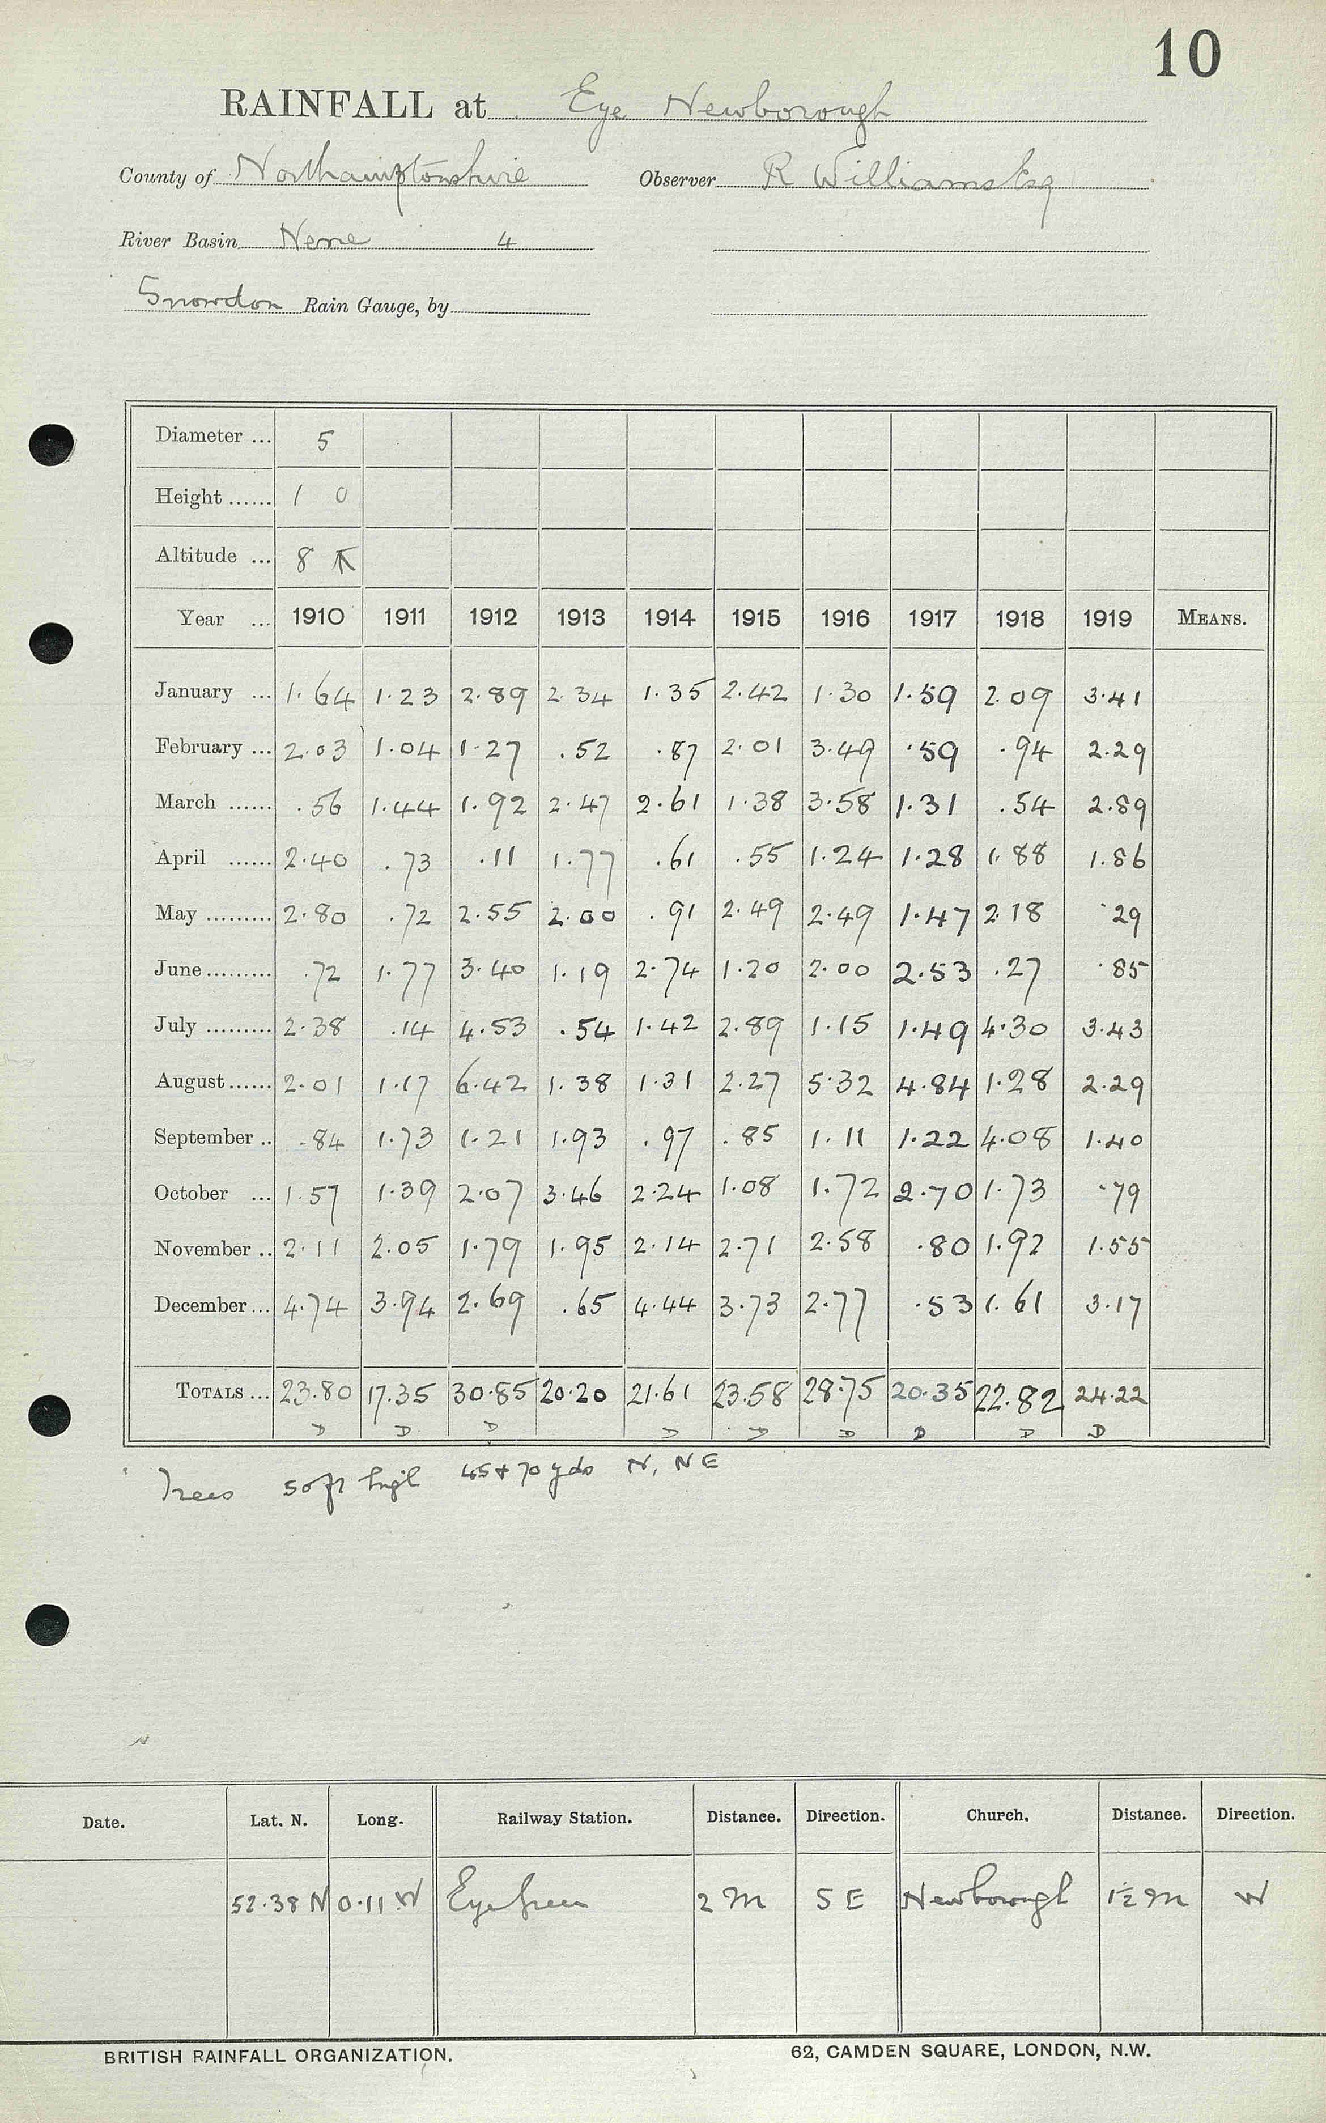 10
RAINFALL at Eye Newborough
County of Northamptonshire Observer R Williams Esq
River Basin Nene 4
Snowdon Rain Gauge, by
Diameter ... 5
Height ...... 1 0
Altitude ... 8
Year ... 1910 1911 1912 1913 1914 1915 1916 1917 1918 1919 MEANS.
January ... 1.64 1.23 2.89 2.34 1.35 2.42 1.30 1.59 2.09 3.41
February ... 2.03 1.04 1.27 .52 .87 2.01 3.49 .59 .94 2.29
March ...... .56 1.44 1.92 2.47 2.61 1.38 3.58 1.31 .54 2.89
April ...... 2.40 .73 .11 1.77 .61 .55 1.24 1.28 1.88 1.86
May ......... 2.80 .72 2.55 2.00 .91 2.49 2.49 1.47 2.18 .29
June ......... .72 1.77 3.40 1.19 2.74 1.20 2.00 2.53 .27 .85
July ......... 2.38 .14 4.53 .54 1.42 2.89 1.15 1.49 4.30 3.43
August ...... 2.01 1.17 6.42 1.38 1.31 2.27 5.32 4.84 1.28 2.29
September .. .84 1.73 1.21 1.93 .97 .85 1.11 1.22 4.08 1.40
October ... 1.57 1.39 2.07 3.46 2.24 1.08 1.72 2.70 1.73 .79
November .. 2.11 2.05 1.79 1.95 2.14 2.71 2.58 .80 1.92 1.55
December ... 4.74 3.94 2.69 .65 4.44 3.73 2.77 .53 1.61 3.17
TOTALS ... 23.80 17.35 30.85 20.20 21.61 23.58 28.75 20.35 22.82 24.22
D D D D D D D D D
Trees 50ft high 45 & 70 yds N, NE
Date. Lat. N. Long. Railway Station. Distance. Direction. Church. Distance. Direction.
52.38 N 0.11 W Eye Green 2 M S E Newborough 1½ M W
BRITISH RAINFALL ORGANIZATION. 62, CAMDEN SQUARE, LONDON, N.W.